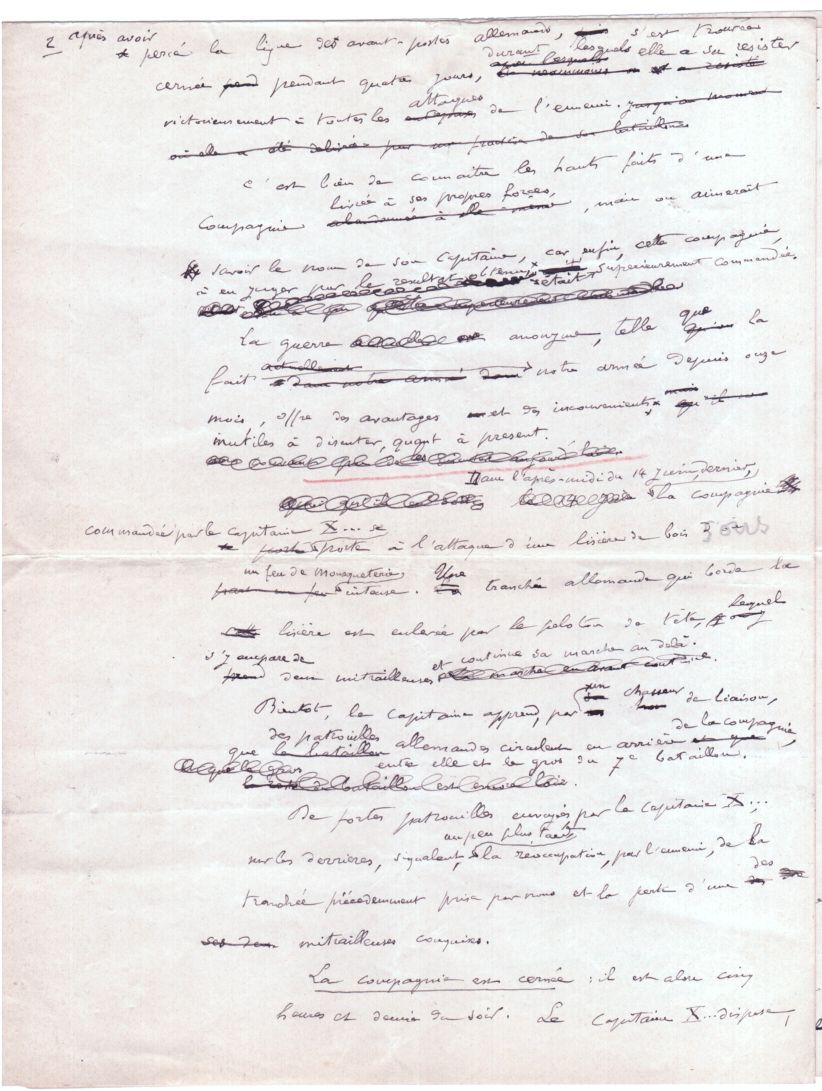 2 après avoir
percé la ligne des avant-postes allemands, s'est trouvée
durant lesquels elle a su résister
cernée pendant quatre jours,
attaques
victorieusement à toutes les de l'ennemi. jusqu'au moment
où elle a été délivrée par une fraction de son bataillon
C'est bien de connaître les hauts faits d'une
livrée à ses propres forces,
Compagnie abandonnée à elle même, mais on aimerait
savoir le nom de son Capitaine, car enfin, cette compagnie,
à en juger par le résultat obtenu, était supérieurement commandée.
La guerre anonyme, telle que la
actuellement
fait dans notre armée notre armée depuis onze
mois, offre des avantages et des inconvénients mais qu'il
inutiles à discuter, quant à présent.
Dans l'après-midi du 14 Juin, dernier,
la compagnie
commandée par le capitaine X... se
porte à l'attaque d'une lisière de bois 3 ours
un feu de mousqueterie, Une
intense. tranchée allemande qui borde la
lisière est enlevée par le peloton de tête, lequel
s'empare de et continue sa marche au delà.
prend deux mitrailleuses la marche en avant continue.
Bientôt, le capitaine apprend, par un chasseur de liaison,
des patrouilles de la compagnie,
que le bataillon allemandes circulent en arrière
entre elle et le gros du 7e bataillon.
De fortes patrouilles envoyées par le capitaine X...
un peu plus tard
sur les derrières, signalent, la réoccupation, par l'ennemi, de la
des
tranchée précédemment prise par nous et la perte d'une
ses deux mitrailleuses conquises.
La compagnie est cernée : il est alors cinq
heures et demie du soir. Le Capitaine X... dispose